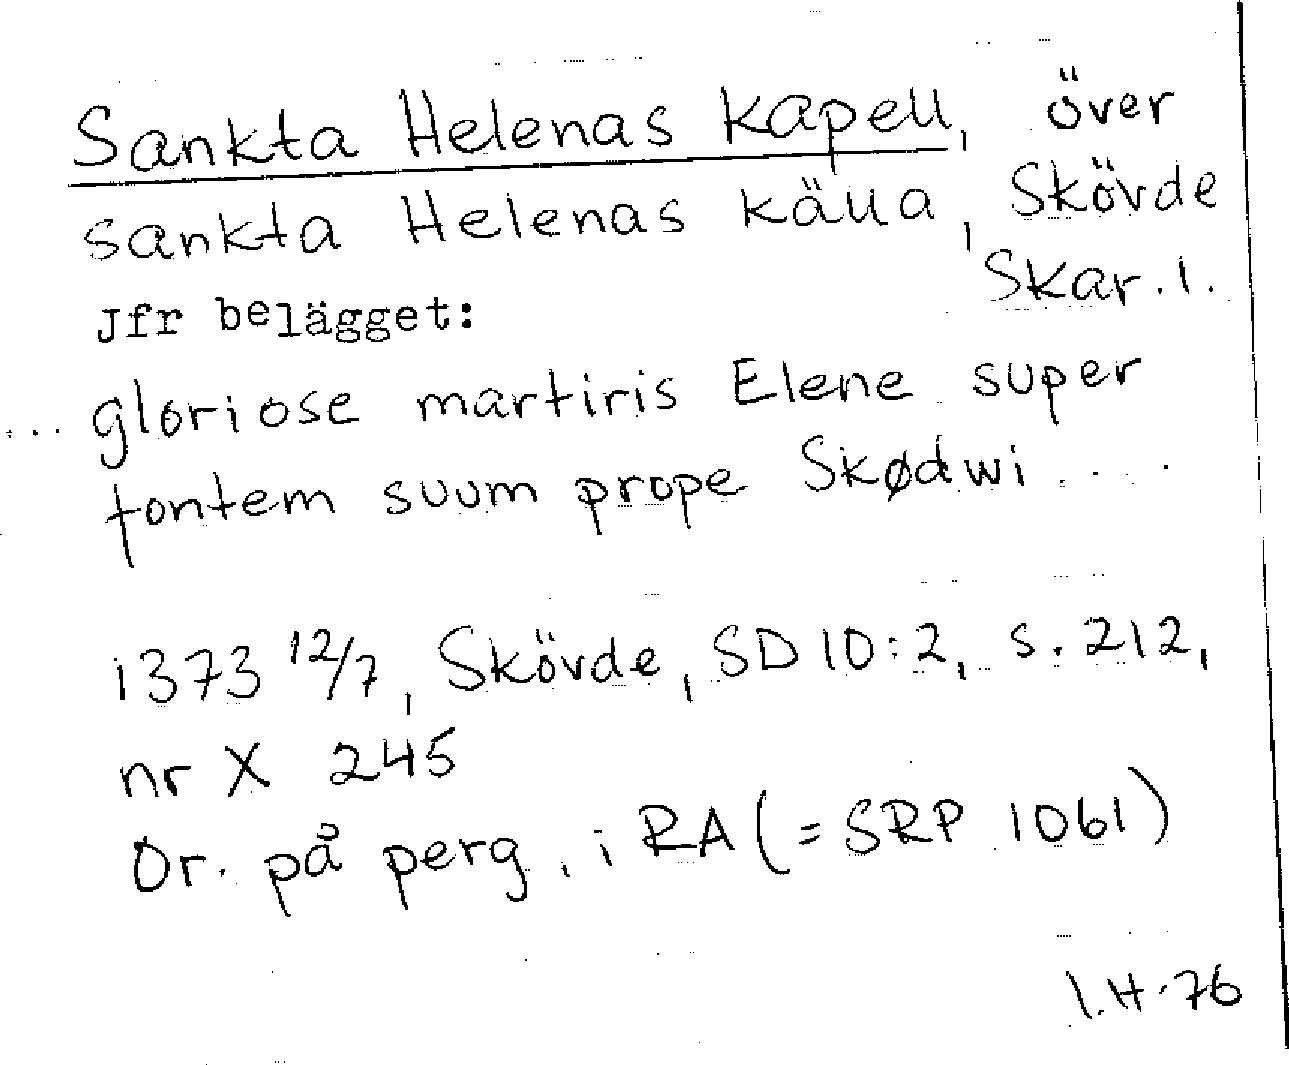 Sankta Helenas kapell, över
sankta Helenas källa, Skövde
Skar. l.
Jfr belägget:
... gloriose martiris Elene super
fontem suum prope Skødwi ....
1373 12/7, Skövde, SD 10:2, s. 212,
nr X 245
Or. på perg. i RA (= SRP 1061)
I.H. 76